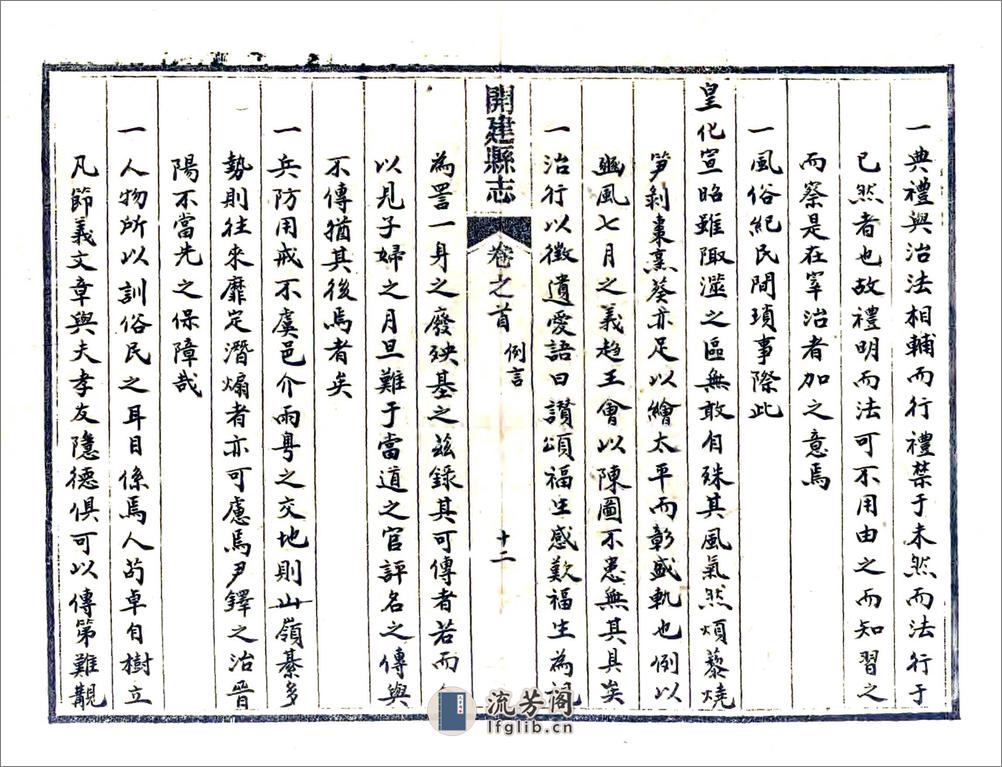 一典禮與治法相輔而行禮禁于未然而法行于
已然者也故禮明而法可不用由之而知習之
而察是在宰治者加之意焉
一風俗紀民間瑣事際此
皇化宣昭雖陬澨之區無敢自殊其風氣然煩藜燒
笋剥棗烹葵亦足以繪太平而彰盛軌也例以
豳風七月之義趋王會以陳圖不患無其具矣
一治行以徵遺愛語曰讃頌福生感歎福生為
開建縣志
卷之首
例言
十二
為詈一身之廢殃基之兹錄其可傳者若而
以見子婦之月旦難于當道之官評名之傳與
不傳猶其後焉者矣
一兵防用戒不虞邑介兩粤之交地則山嶺綦多
勢則往來靡定潛煽者亦可慮焉尹鐸之治晉
陽不當先之保障哉
一人物所以訓俗民之耳目係焉人茍卓自樹立
凡節義文章與夫孝友隱德俱可以傳第難觏
流芳阁
lfglib.cn